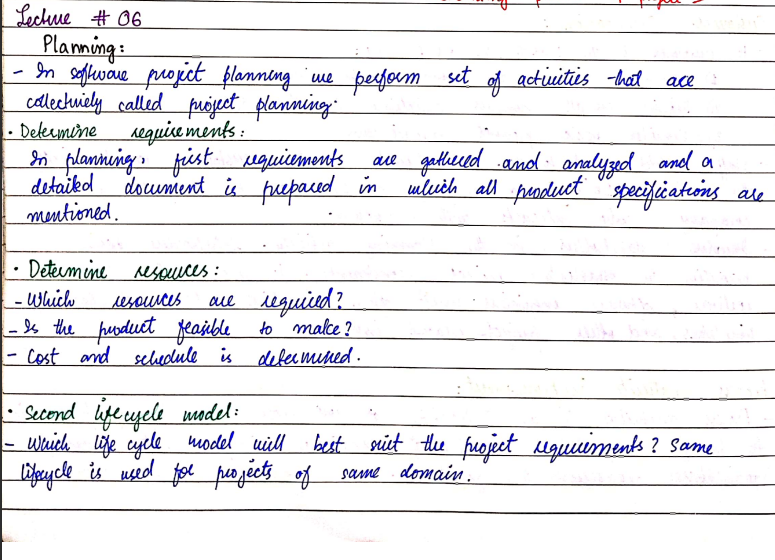 Lecture # 06
Planning:
- In software project planning we perform set of activities that are
collectively called project planning.
· Determine requirements:
In planning, first requirements are gathered and analyzed and a
detailed document is prepared in which all product specifications are
mentioned.
· Determine resources:
- Which resources are required?
- Is the product feasible to make?
- Cost and schedule is determined.
· Second lifecycle model:
- Which life cycle model will best suit the project requirements? Same
lifecycle is used for projects of same domain.